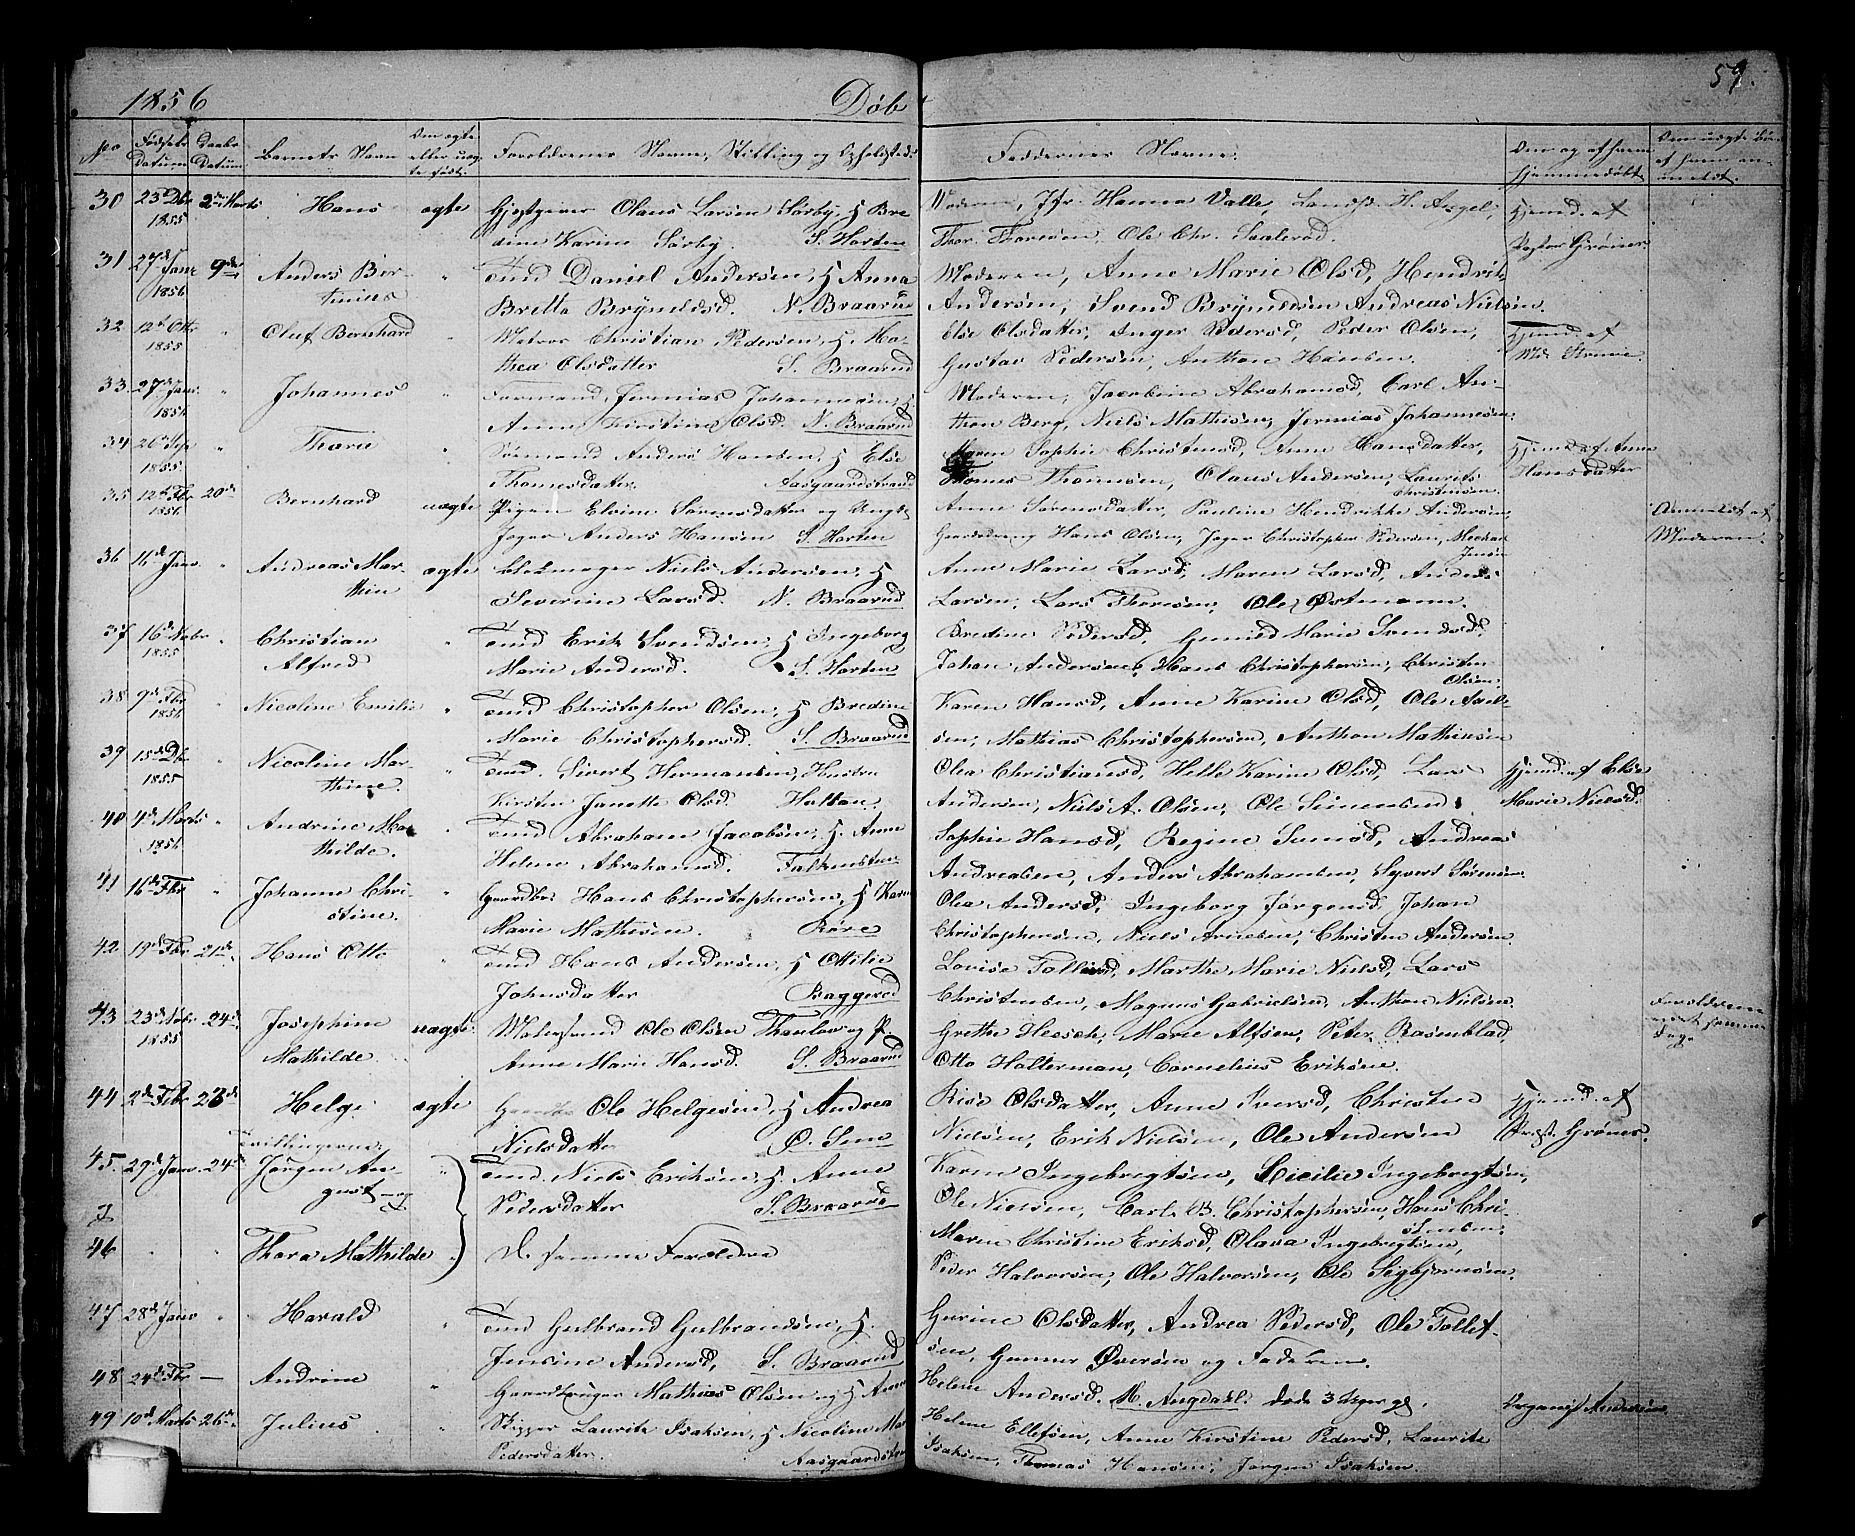 1856 Døbt 59.
No Fødsels Datum Daabs Datum Barnets Navn Om ægte eller uægte født Forældrenes Navne, Stilling og Opholdsted Faddernes Navne. Om og af hvem hjemmedøbt Om uægte
30 23 Db 1855 2den Marts Hans ægte Gjestgiver Olaus Larsen Sørby, H Bredine Karine Sørby. S. Horten
Moderen, Jfr. Hanna Valle, H. Angel, Thor. Thoresen, Ole Chr. Saalerød. Hjemd. af Pastor Grøner
31 27d Janr 1856 9de Anders Bertinius " Tmd Daniel Andersen, H Anna Britta Brynildsd. N. Braarud
Moderen, Anne Marie Olsd, Hendrik Andersen, Svend Bryndelsen Andreas Nielsen.
32 12t Otb 1855 " Oluf Bernhard Matros Christian Pedersen, H. Mathea Olsdatter S. Braarud
Else Olsdatter, Inger Pedersd, Peder Olsen, Gustav Pedersen, Anthon Hansen. Hjemd. af
33. 27d Janr. 1856 " Johannes " Formand Jermias Johannesen, H Anne Kirstine Olsd. N. Braarud
Moderen, Jacobine Abrahamsd, Carl Anthon Berg, Niels Mathisen, Jermias Johannesen.
34 26 Sep 1855 " Thorie " Sømand Anders Hansen, H Else Thomesdatter. Aasgaardstrand
Maren Sophie Christensd, Anne Hansdatter, Thomes Thomsen, Olaus Andersen, Laurits Christensen. Hjemd. af Anne Hansdatter
35 12t Fbr 1856 20de Bernhard uægte Pigen Elvine Sørensdatter og Ungk. Jager Anders Hansen S. Horten
Anne Sørensdatter, Pauline Hendrikke Andersen, Hans Olsen, Jager Christopher Pedersen, Michael Jensen Anmeldt af Moderen.
36 16d Janr " Andreas Marthin ægte Blokmager Niels Andersen, H Severine Larsd. N. Braarud
Anne Marie Larsd, Maren Larsd, Anders Larsen, Lars Thoresen, Ole Østmann.
37 16d Nobr 1855 " Christian Alfred " Tmd Erik Svendsen, H Ingeborg Marie Andersd. S. Horten
Bredine Pedersd, Gunild Marie Svendsd, Johan Andersen, Hans Christophersen, Christen Olsen.
38 9de Fbr 1856 " Nicoline Emilie " Tmd Christopher Olsen, H Bredine Marie Christophersd. S. Braarud
Karen Hansd, Anne Karine Olsd, Ole Axelsen, Mathias Christophersen, Anthon Mathiesen
39 15d Db 1855 " Nicoline Marthine. " Tmd. Sivert Hermansen, Hustru Kirsten Janette Olsd. Holtan.
Olea Christiansd, Helle Karine Olsd, Lars Andersen, Niels A. Olsen, Ole Simensen Hjemd. af Else Marie Nielsd.
40 4d Marts 1856 " Andrine Mathilde. " Tmd Abraham Jacobsen, H. Anne Helene Abrahamsd. Falkensten
Sophie Hansd, Regine Simsd, Andreas Andreasen, Anders Abrahamsen, Syvert Sørensen
41 16d Fbr " Johanne Christine. " Gaardbr. Hans Christophersen, H Karen Marie Mathisen. Røre
Olea Andersd, Ingeborg Jørgensd, Johan Christophersen, Niels Arnesen, Christen Andersen
42. 19d Fbr 21de Hans Otto " Tmd Hans Andersen, H Ottilie Johnsdatter Baggerød
Lovise Tollefsd, Marthe Marie Nielsd, Lars Christensen, Magnus Gabrielsen, Anthon Nielsen
43 23d Nobr 1855 24de Josephine Mathilde uægte Malersvend Ole Olsen Thanlow og P. Anne Marie Hansd. S. Braarud
Grethe Hesch, Marie Alfsen, Peter Rosenblad, Otto Holterman, Cornelius Eriksen. Forældrene
44 2d Febr 23de Helge ægte Ole Helgesen, H Andrea Nielsdatter Ø. Sem
Risè Olsdatter, Anne Iversd, Christen Nielsen, Erik Nielsen, Ole Andersen Hjemd. af Præst. Grøner
Tvillingerne
45. 29d Janr. 24de Jørgen August og " Tmd. Niels Eriksen, H. Anne Pedersdatter S. Braarud
Karen Ingebregtsen, Cicilie Ingebregtsen, Ole Nielsen, Carl B. Christophersen, Hans Christensen
46 " " Thora Mathilde " D. samme Forældre
Maren Christine Eriksd, Olava Ingebregtsen, Peder Halvorsen, Ole Halvorsen, Ole Sigbjørnsen.
47 28d Janr " Harald " Tmd Gulbrand Gulbrandsen, H. Jensine Andersd, S. Braarud
Gurine Olsdatter, Andrea Pedersd, Ole Tollefsen, Gunner Iversen og Faderen
48 24d Fbr — Andrine " Gaardbruger Mathias Olsen og H Anne
Helene Andersd. M. Augdahl. døde 3 Uger gl.
49 10d Marts 26de Julius " Skipper Laurits Isaksen, H Nicoline Mar. Pedersdatter. Aasgaardstrand
Helene Ellefsen, Anne Kirstine Pedersd, Laurits Isaksen, Thomas Hansen, Jørgen Isaksen. Organist Andersen